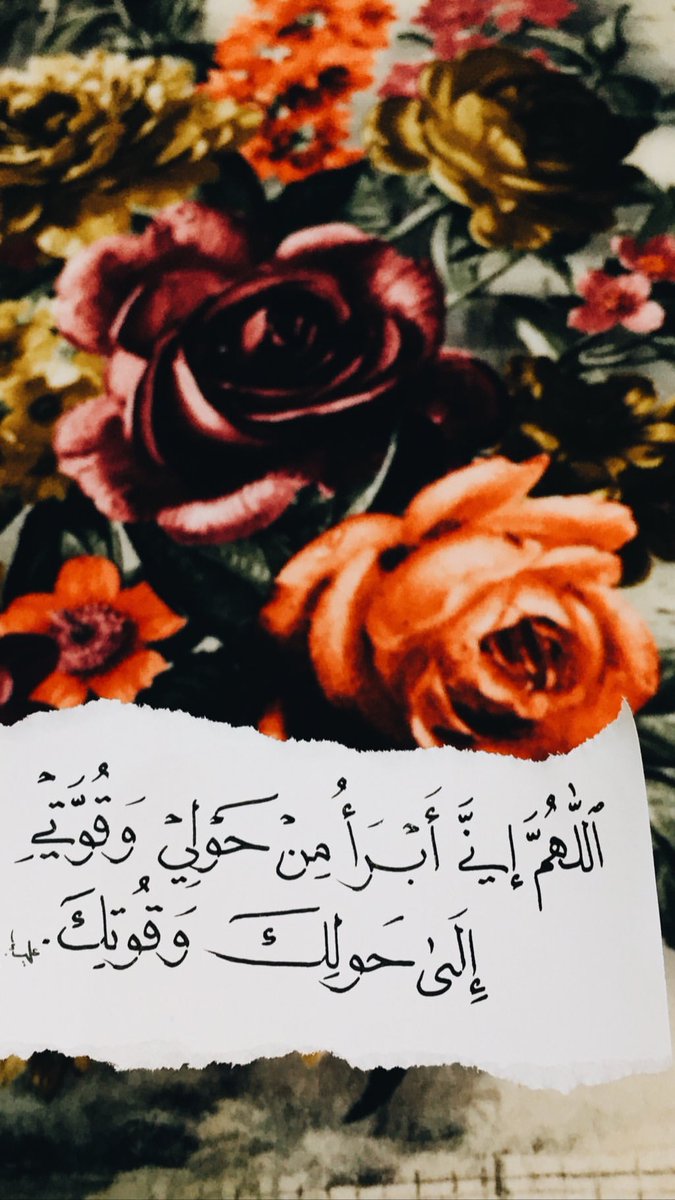 اللَّهُمَّ إِنِّي أَبْرَأُ مِنْ حَوْلِيْ وَقُوَّتِيْ
إِلَىٰ حَولِكَ وَقُوتِكَ.